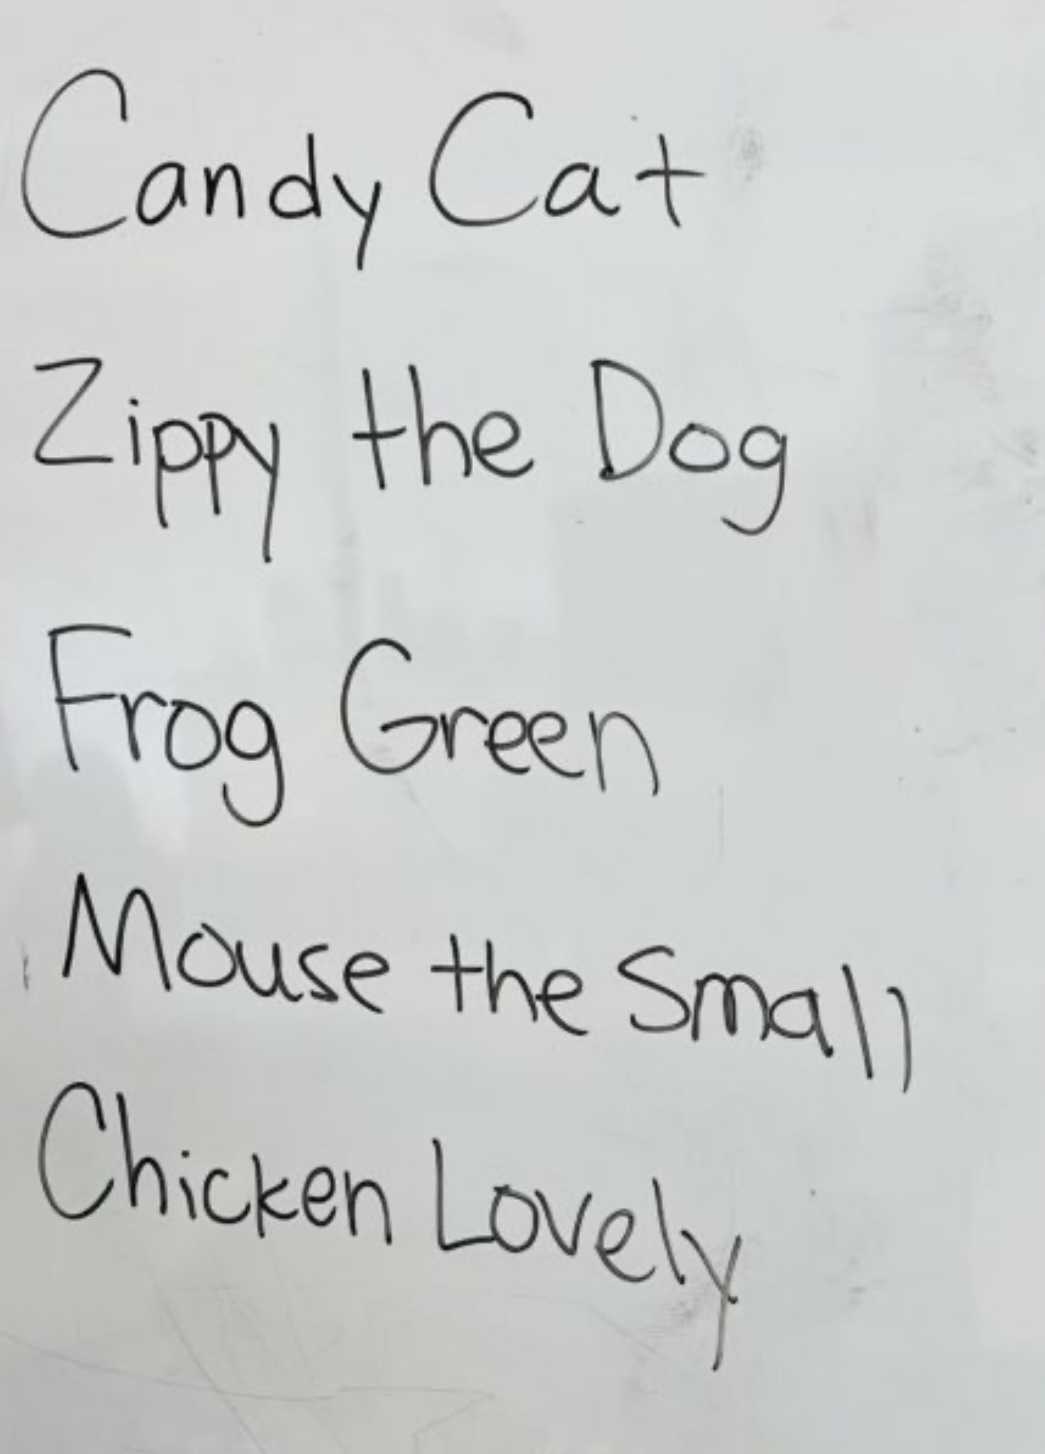 Candy Cat
Zippy the Dog
Frog Green
Mouse the Small
Chicken Lovely